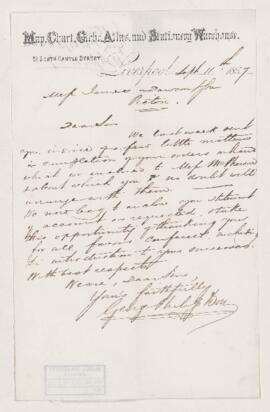 Map, Chart, Globe, Atlas, and Stationery Warehouse.
51 South Castle Street
Liverpool Sept 11th 1857
Mess James
Picton
Dear Sirs
We last week sent
you invoice of a few little matters
in completion of your orders
which we
about which you no doubt will
arrange with them.
We now beg to enclose you statement
of account as requested, & take
this opportunity of thanking you
for all favors conferred, including
introduction to your successors.
With best respects
We are, Dear Sirs,
Yours faithfully
George Philip & Son